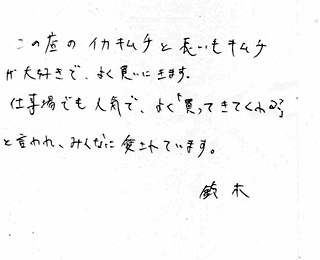 この店のイカキムチと長いもキムチ
が大好きで、よく買いにきます。
仕事場でも人気で、よく「買ってきてくれる?」
と言われ、みんなに愛されています。
鈴木